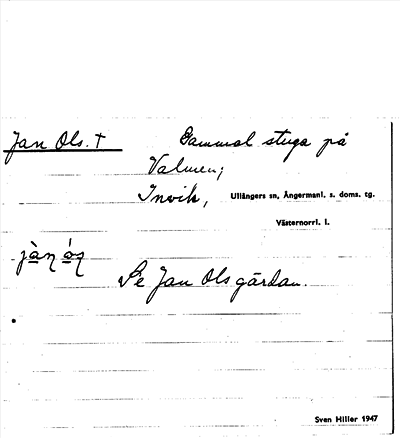 Jan Ols. † Gammal stuga på
Valmen;
Invik, Ullångers sn, Ångermanl. s. doms. tg.
Västernorrl. l.
jàn ós
Se Jan Olsgårdan.
Sven Hiller 1947